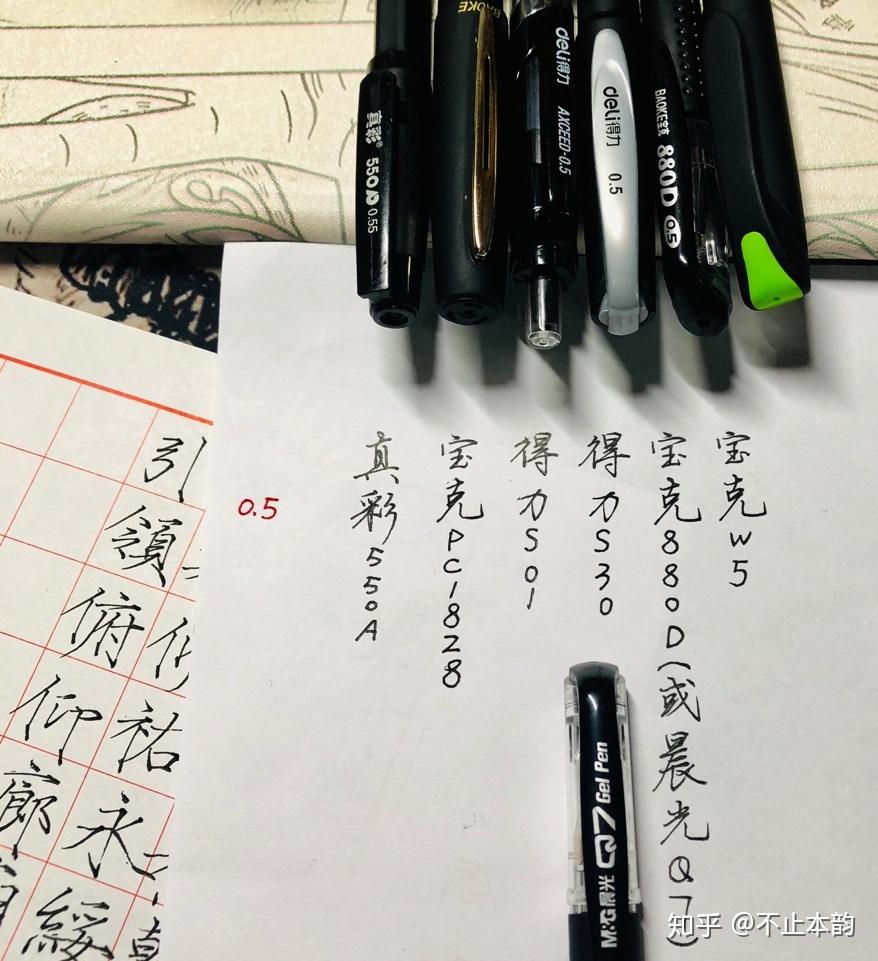 真彩® 550A 0.55
BAOKE
deli得力 AXCEED-0.5
deli得力 0.5
BAOKE宝克 880D 0.5
0.5
真彩550A
宝克PC1828
得力S01
得力S30
宝克880D(或晨光Q7)
宝克W5
M&G晨光 Q7 Gel Pen
引領
俯仰廊
祜永綏
知乎 @不止本韵